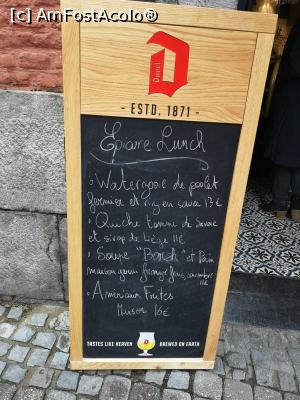 [c] AmFostAcolo®
Duvel
- ESTD. 1871 -
Epicure Lunch
Waterzooie de poulet
fermier et riz en sauce 13€
Quiche tomme de Savoie
et sirop de Liège 11€
Soupe "Borsch" et Pain
maison
11€
Américain Frites
Maison 16€
TASTES LIKE HEAVEN BREWED ON EARTH